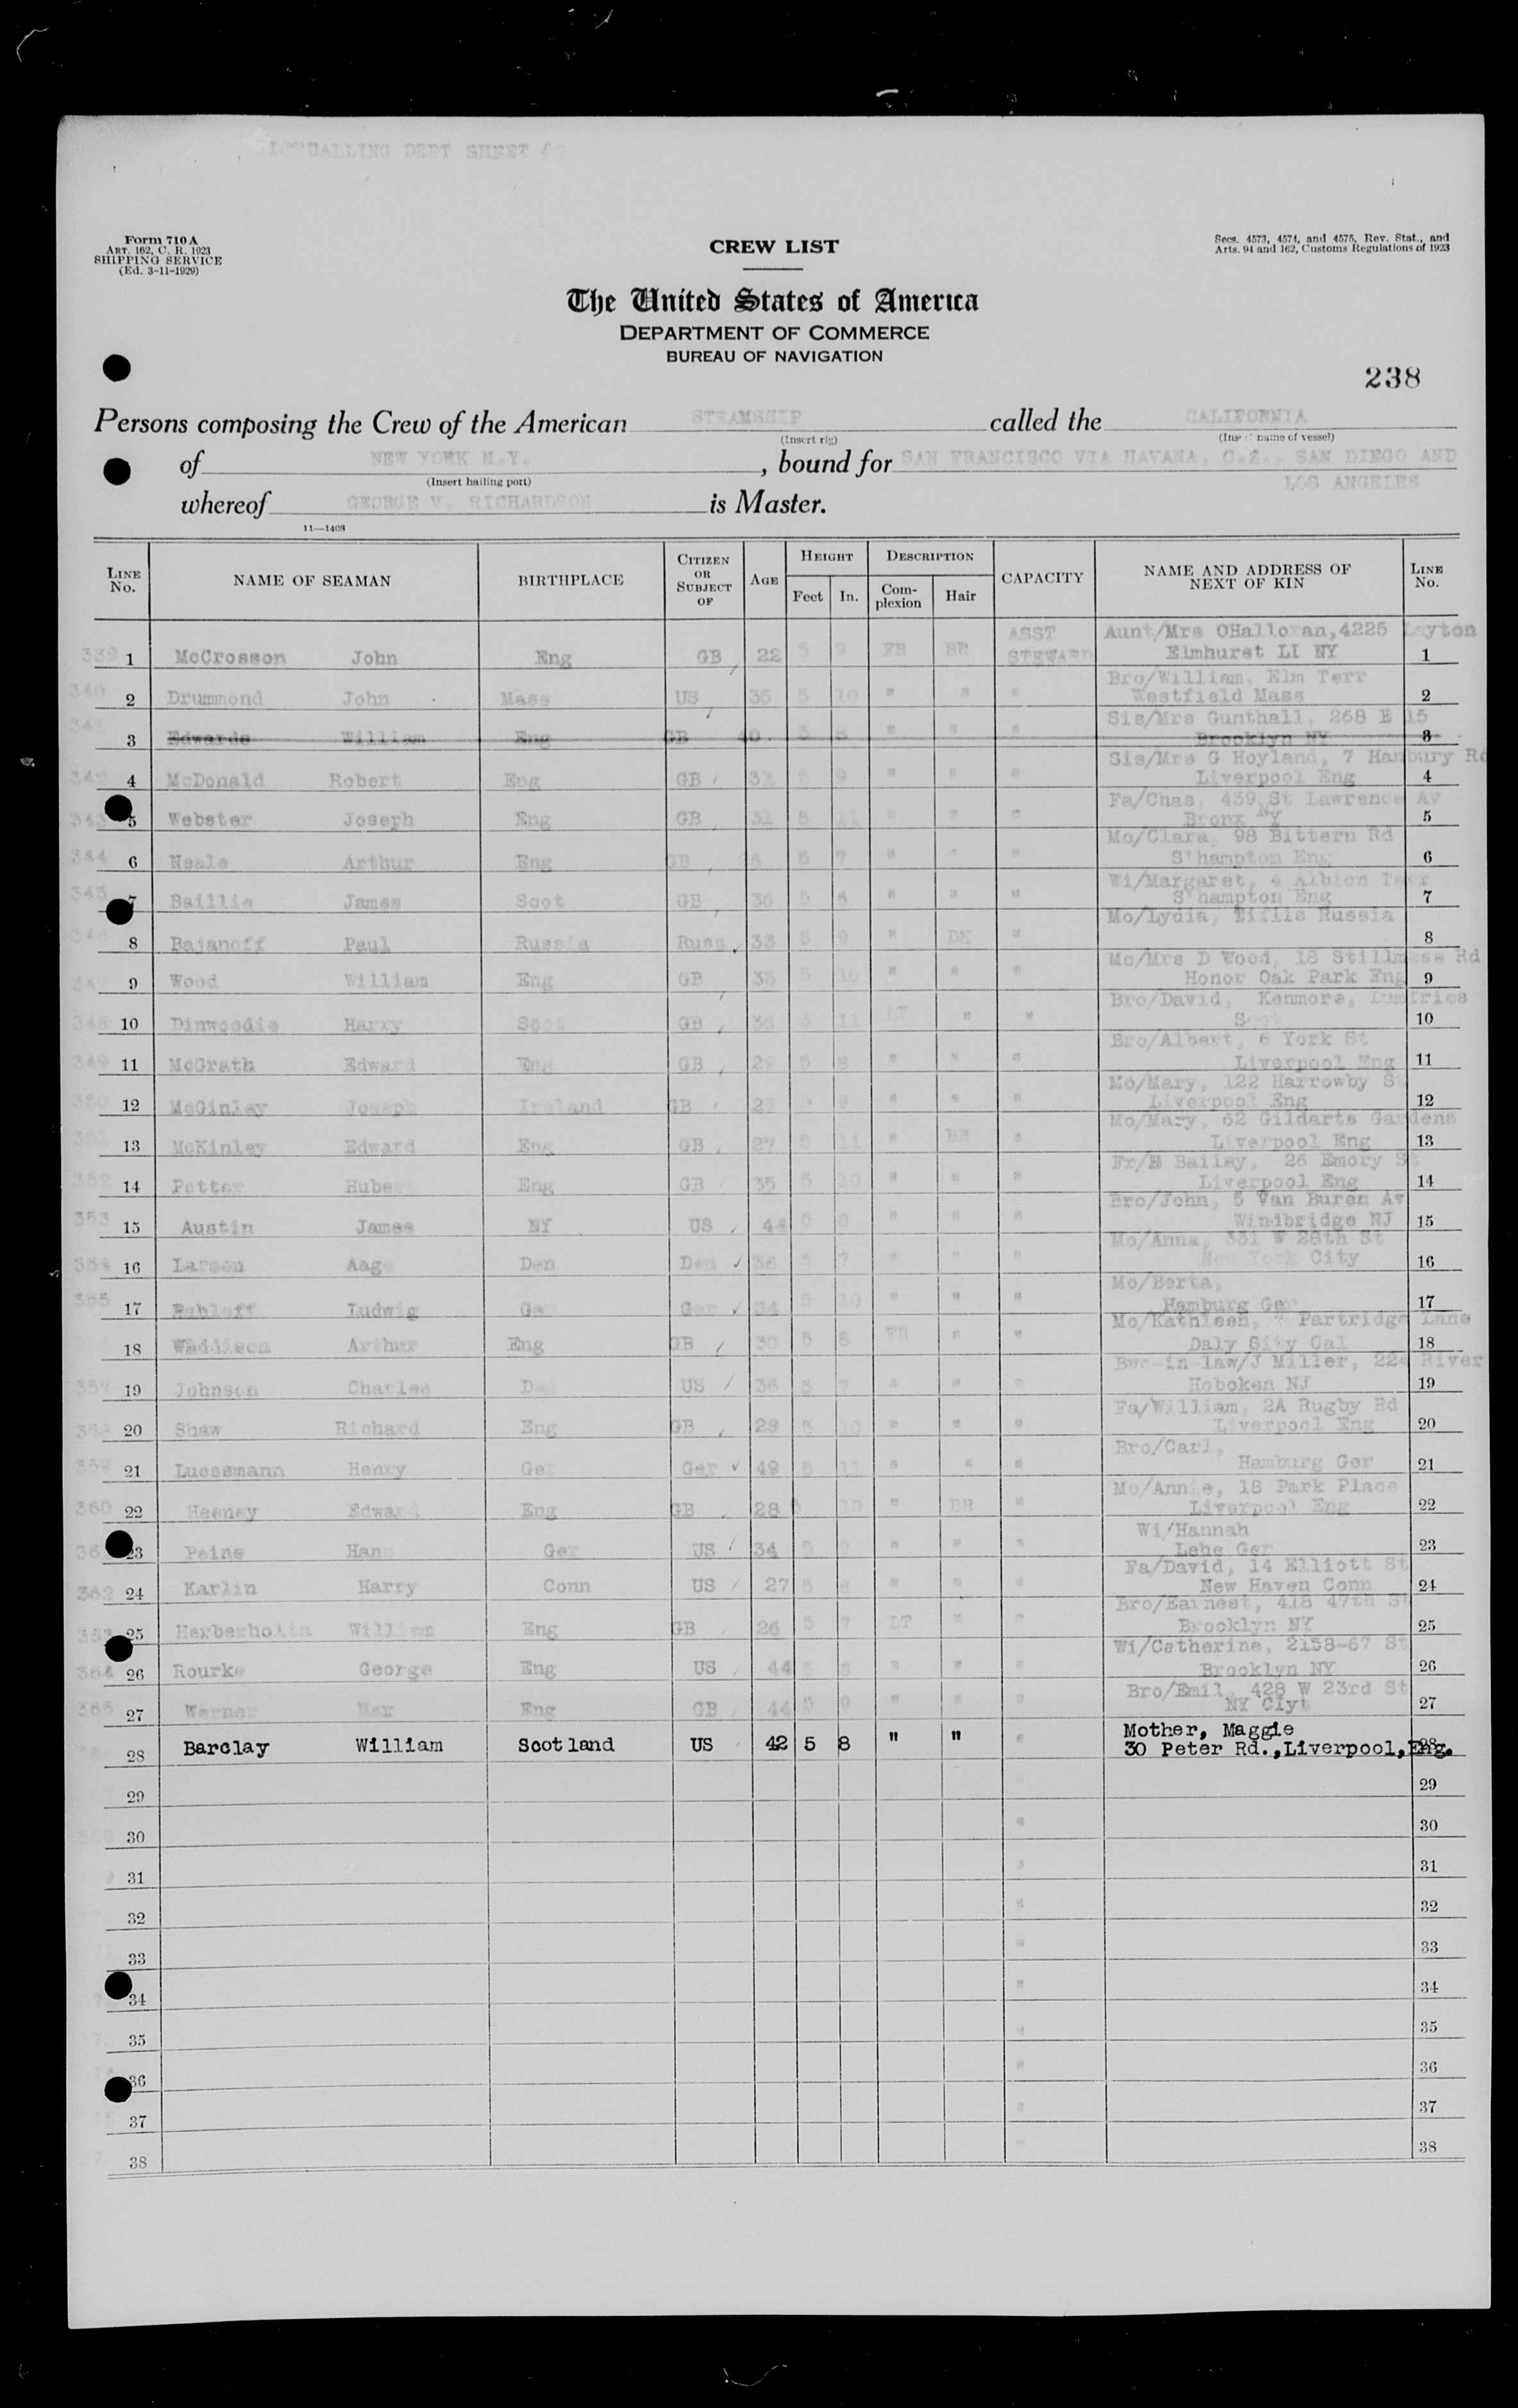 DEPT SHEET
Form 710 A
ART. 162, C. R. 1923
SHIPPING SERVICE
(Ed. 3-11-1929)
CREW LIST
Secs. 4573, 4574, and 4575, Rev. Stat., and
Arts. 94 and 162, Customs Regulations of 1923
The United States of America
DEPARTMENT OF COMMERCE
BUREAU OF NAVIGATION
238
Persons composing the Crew of the American STEAMSHIP called the CALIFORNIA
(Insert rig) (Insert name of vessel)
of NEW YORK N.Y., bound for SAN FRANCISCO VIA HAVANA, C.Z., SAN DIEGO AND
(Insert hailing port) LOS ANGELES
whereof GEORGE V. RICHARDSON is Master.
11—1408
LINE No. NAME OF SEAMAN BIRTHPLACE CITIZEN OR SUBJECT OF AGE HEIGHT Feet In. DESCRIPTION Complexion Hair CAPACITY NAME AND ADDRESS OF NEXT OF KIN LINE No.
339 1 McCrosson John Eng GB 22 5 9 FR BR ASST STEWARD Aunt/Mrs OHalloran, 4225 Layton Elmhurst LI NY 1
340 2 Drummond John Mass US 35 5 10 " " " Bro/William, Elm Terr Westfield Mass 2
341 3 Edwards William Eng GB 40 5 " " " Sis/Mrs Gunthall, 268 E 15 Brooklyn NY 3
342 4 McDonald Robert Eng GB 33 5 9 " " " Sis/Mrs G Hoyland, 7 Hanbury Rd Liverpool Eng 4
343 5 Webster Joseph Eng GB 31 5 11 " " " Fa/Chas, 439 St Lawrence Av Bronx NY 5
344 6 Neale Arthur Eng GB 5 7 " " " Mo/Clara, 98 Bittern Rd S'hampton Eng 6
345 7 Baillie James Scot GB 36 5 6 " " " Wi/Margaret, 4 Albion Terr S'hampton Eng 7
346 8 Bajanoff Paul Russia Russ 33 5 9 " DK " Mo/Lydia, Tiflis Russia 8
347 9 Wood William Eng GB 33 5 10 " " " Mo/Mrs D Wood, 18 Rd Honor Oak Park Eng 9
348 10 Dinwoodie Harry Scot GB 36 5 11 LT " " Bro/David, Kenmore, Dumfries Scot 10
349 11 McGrath Edward Eng GB 29 5 8 " " " Bro/Albert, 6 York St Liverpool Eng 11
350 12 McGinley Joseph Ireland GB 27 9 " " " Mo/Mary, 122 Harrowby St Liverpool Eng 12
351 13 McKinley Edward Eng GB 27 5 11 " BR " Mo/Mary, 62 Gildarts Gardens Liverpool Eng 13
352 14 Potter Hubert Eng GB 35 5 10 " " " Fr/B Bailey, 26 Emory St Liverpool Eng 14
353 15 Austin James NY US 5 8 " " " Bro/John, 5 Van Buren Av Windbridge NJ 15
354 16 Larsen Aage Den Den 36 5 7 " " " Mo/Anna, 331 W 28th St New York City 16
355 17 Ludwig Ger Ger 34 5 10 " " " Mo/Berta, Hamburg Ger 17
18 Waddison Arthur Eng GB 30 5 8 FR " " Mo/Kathleen, Partridge Lane Daly City Cal 18
357 19 Johnson Charles Den US 36 5 7 " " " Bro-in-law/J Miller, 224 River Hoboken NJ 19
358 20 Shaw Richard Eng GB 29 5 10 " " " Fa/William, 2A Rugby Rd Liverpool Eng 20
359 21 Luessmann Henry Ger Ger 49 5 11 " " " Bro/Carl, Hamburg Ger 21
360 22 Heeney Edward Eng GB 28 5 10 " BR " Mo/Annie, 18 Park Place Liverpool Eng 22
361 23 Peine Hans Ger US 34 5 " " " Wi/Hannah Lehe Ger 23
362 24 Karlin Harry Conn US 27 5 8 " " " Fa/David, 14 Elliott St New Haven Conn 24
363 25 William Eng GB 26 5 7 LT " " Bro/Earnest, 418 47th St Brooklyn NY 25
364 26 Rourke George Eng US 44 5 8 " " " Wi/Catherine, 2158-67 St Brooklyn NY 26
365 27 Werner Max Eng GB 44 5 9 " " " Bro/Emil, 428 W 23rd St NY CIyt 27
28 Barclay William Scotland US 42 5 8 " " " Mother, Maggie 30 Peter Rd., Liverpool, Eng. 28
29 29
30 " 30
31 " 31
32 " 32
33 " 33
34 " 34
35 " 35
36 " 36
37 " 37
38 38